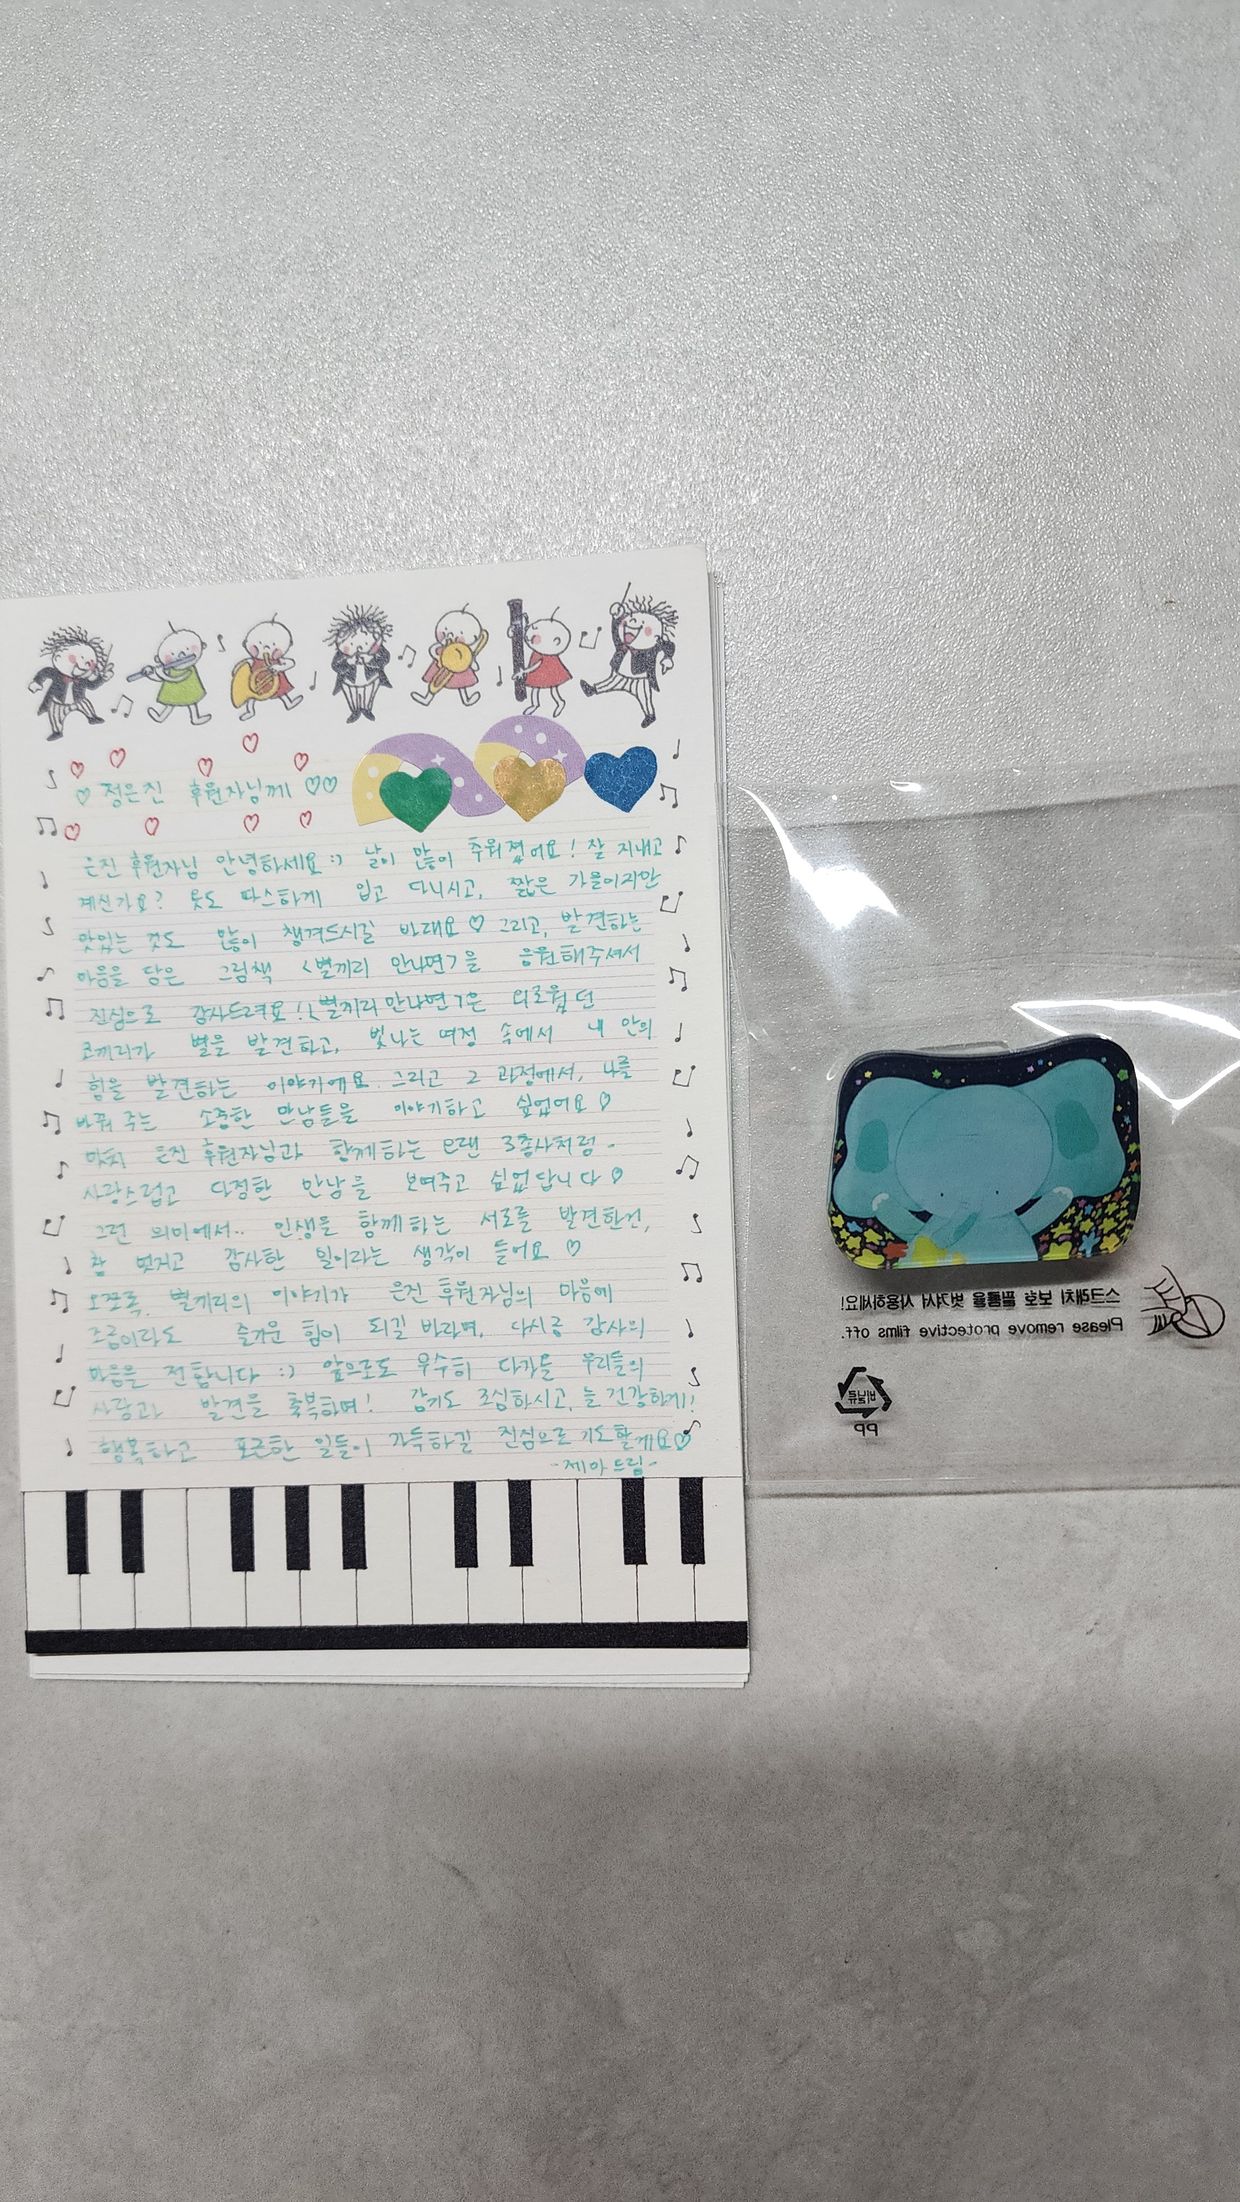 ♡ 정은진 후원자님께 ♡♡
은진 후원자님 안녕하세요 :) 날이 많이 추워졌어요! 잘 지내고
계신가요? 옷도 따스하게 입고 다니시고, 짧은 가을이지만
맛있는 것도 많이 챙겨드시길 바래요♡ 그리고, 발견하는
마음을 담은 그림책 <별끼리 만나면>을 응원해주셔서
진심으로 감사드려요! <별끼리 만나면>은 외로웠던
코끼리가 별을 발견하고, 빛나는 여정 속에서 내 안의
힘을 발견하는 이야기예요. 그리고 그 과정에서, 나를
바꿔 주는 소중한 만남들을 이야기하고 싶었어요♡
마치 은진 후원자님과 함께하는 오랜 3총사처럼-
사랑스럽고 다정한 만남을 보여주고 싶었답니다♡
그런 의미에서.. 인생을 함께하는 서로를 발견하건,
참 멋지고 감사한 일이라는 생각이 들어요 ♡
모쪼록, 별끼리의 이야기가 은진 후원자님의 마음에
조금이라도 즐거운 힘이 되길 바라며, 다시금 감사의
마음을 전합니다 :) 앞으로도 무수히 다가올 우리들의
사랑과 발견을 축복하며! 감기도 조심하시고, 늘 건강하게!
행복하고 포근한 일들이 가득하길 진심으로 기도할게요♡
-제아 드림-
스크래치 보호 필름을 벗겨서 사용하세요!
Please remove protective films off.
비닐류
PP